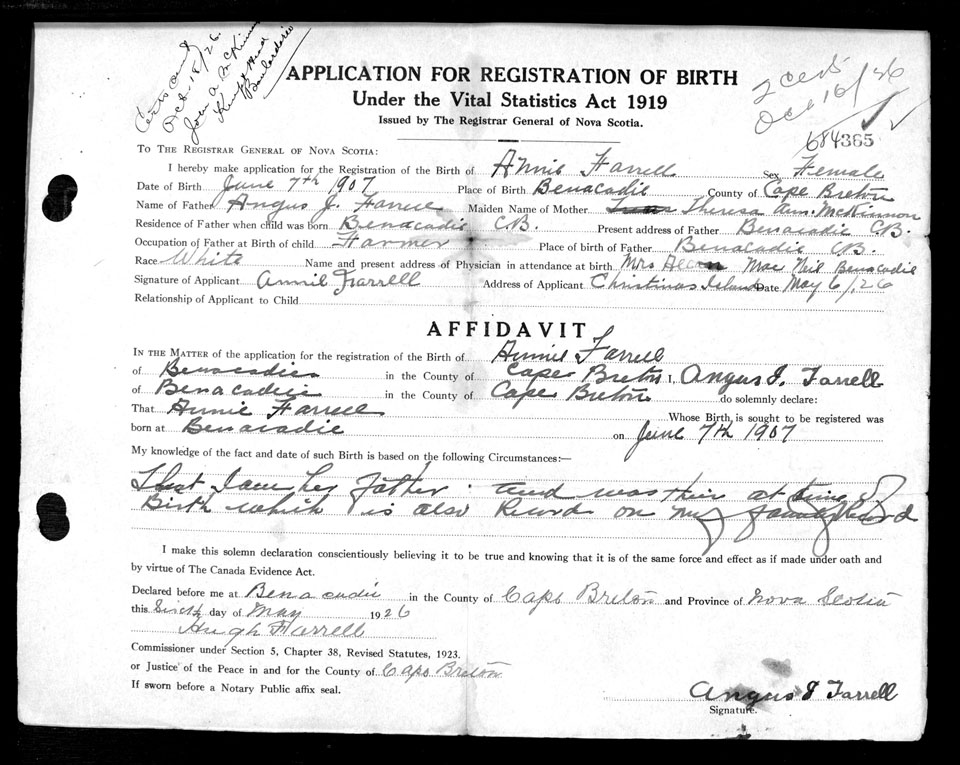 Oct. 18/26.
2 certs
Oct 16/46
APPLICATION FOR REGISTRATION OF BIRTH
Under the Vital Statistics Act 1919
Issued by The Registrar General of Nova Scotia.
684365
TO THE REGISTRAR GENERAL OF NOVA SCOTIA:
I hereby make application for the Registration of the Birth of Annie Farrell Sex Female
Date of Birth June 7th 1907 Place of Birth Benacadie County of Cape Breton
Name of Father Angus J. Farrell Maiden Name of Mother Theresa Ann McKinnon
Residence of Father when child was born Benacadie C.B. Present address of Father Benacadie C.B.
Occupation of Father at Birth of child Farmer Place of birth of Father Benacadie C.B.
Race White Name and present address of Physician in attendance at birth Mrs Mac Neil Benacadie
Signature of Applicant Annie Farrell Address of Applicant Christmas Island Date May 6/26
Relationship of Applicant to Child
AFFIDAVIT
IN THE MATTER of the application for the registration of the Birth of Annie Farrell
of Benacadie in the County of Cape Breton I, Angus J. Farrell
of Benacadie in the County of Cape Breton do solemnly declare:
That Annie Farrell Whose Birth is sought to be registered was
born at Benacadie on June 7th 1907
My knowledge of the fact and date of such Birth is based on the following Circumstances:—
That I am her father and was thir at time of
Birth which is also Record on my family Record
I make this solemn declaration conscientiously believing it to be true and knowing that it is of the same force and effect as if made under oath and
by virtue of The Canada Evidence Act.
Declared before me at Benacadie in the County of Cape Breton and Province of Nova Scotia
this Sixth day of May 1926
Hugh Farrell
Commissioner under Section 5, Chapter 38, Revised Statutes, 1923.
or Justice of the Peace in and for the County of Cape Breton
If sworn before a Notary Public affix seal.
Angus J Farrell
Signature.